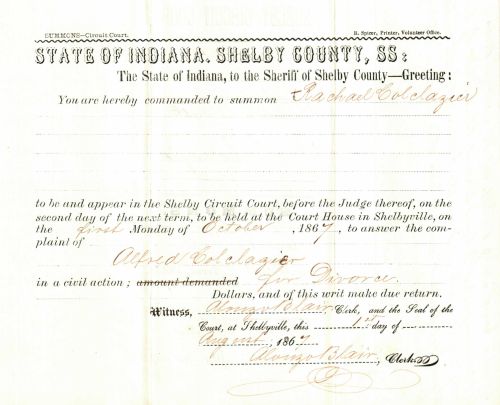 SUMMONS—Circuit Court. R. Spicer, Printer, Volunteer Office.
STATE OF INDIANA. SHELBY COUNTY, SS:
The State of Indiana, to the Sheriff of Shelby County—Greeting:
You are hereby commanded to summon Rachael Colclazier
to be and appear in the Shelby Circuit Court, before the Judge thereof, on the
second day of the next term, to be held at the Court House in Shelbyville, on
the first Monday of October, 1867, to answer the com-
plaint of
Alfred Colclazier
in a civil action; amount demanded for Divorce.
Dollars, and of this writ make due return.
Witness, Alonzo Blair, Clerk, and the Seal of the
Court, at Shelbyville, this 1st day of
August, 1867.
Alonzo Blair, Clerk